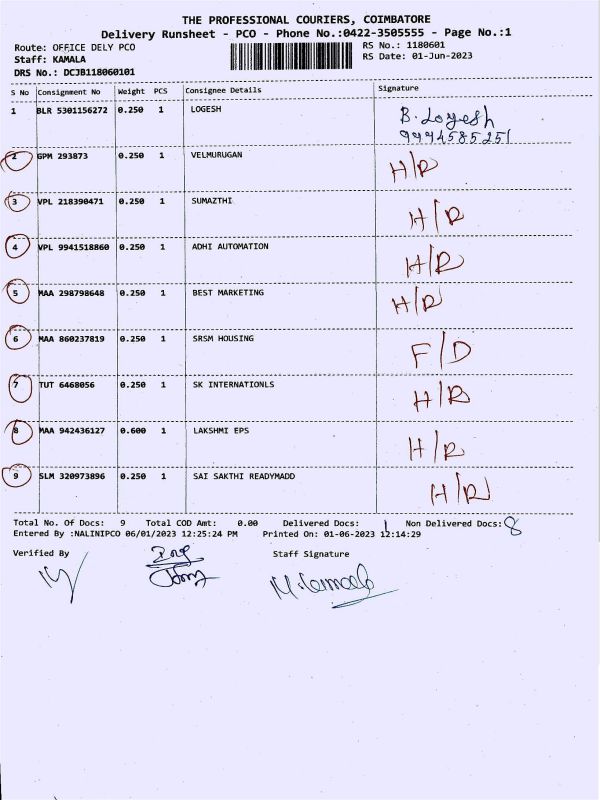 THE PROFESSIONAL COURIERS, COIMBATORE
Delivery Runsheet - PCO - Phone No.:0422-3505555 - Page No.:1
Route: OFFICE DELY PCO RS No.: 1180601
Staff: KAMALA RS Date: 01-Jun-2023
DRS No.: DCJB118060101
S No Consignment No Weight PCS Consignee Details Signature
1 BLR 5301156272 0.250 1 LOGESH B. Logesh
9994585251
2 GPM 293873 0.250 1 VELMURUGAN H/R
3 VPL 218390471 0.250 1 SUMAZTHI H/R
4 VPL 9941518860 0.250 1 ADHI AUTOMATION H/R
5 MAA 298798648 0.250 1 BEST MARKETING H/R
6 MAA 860237819 0.250 1 SRSM HOUSING F/D
7 TUT 6468056 0.250 1 SK INTERNATIONLS H/R
8 MAA 942436127 0.600 1 LAKSHMI EPS H/R
9 SLM 320973896 0.250 1 SAI SAKTHI READYMADD H/R
Total No. Of Docs: 9 Total COD Amt: 0.00 Delivered Docs: 1 Non Delivered Docs: 8
Entered By :NALINIPCO 06/01/2023 12:25:24 PM Printed On: 01-06-2023 12:14:29
Verified By Staff Signature